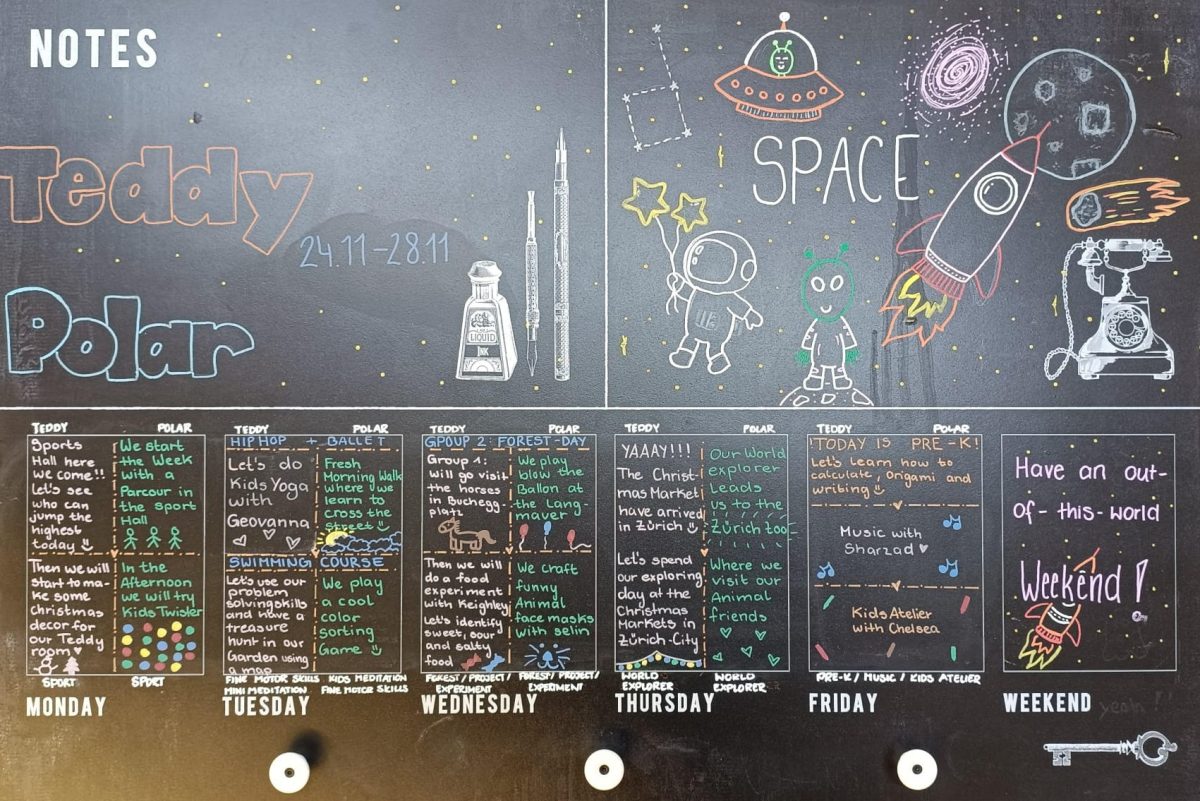 NOTES
Teddy
24.11-28.11
Polar
LIQUID
INK
SPACE
TEDDY POLAR
Sports
Hall here
we come!!
Let's see
who can
jump the
highest
today
We start
the Week
with a
Parcour in
the sport
Hall
Then we will
start to ma-
ke some
christmas
decor for
our Teddy
room
In the
Afternoon
we will try
Kids Twister
SPORT SPORT
MONDAY
TEDDY POLAR
HIP HOP + BALLET
Let's do
Kids Yoga
with
Geovanna
Fresh
Morning Walk
where we
learn to
cross the
street
SWIMMING COURSE
Let's use our
problem
solving skills
and have a
treasure
hunt in our
Garden using
a map
We play
a cool
color
sorting
Game
FINE MOTOR SKILLS KIDS MEDITATION
MINI MEDITATION FINE MOTOR SKILLS
TUESDAY
TEDDY POLAR
GROUP 2: FOREST-DAY
Group 1:
will go visit
the horses
in Buchegg-
platz
We play
blow the
Ballon at
the Lang-
mauer
Then we will
do a food
experiment
with Keighley
Let's identify
sweet, sour
and salty
food
We craft
funny
Animal
face masks
with selin
FOREST/PROJECT/ FOREST/PROJECT/
EXPERIMENT EXPERIMENT
WEDNESDAY
TEDDY POLAR
YAAAY!!!
The Christ-
mas Market
have arrived
in Zürich
Our World
explorer
Leads
us to the
Zürich Zoo
Let's spend
our exploring
day at the
Christmas
Markets in
Zürich-City
Where we
visit our
Animal
friends
WORLD WORLD
EXPLORER EXPLORER
THURSDAY
TEDDY POLAR
TODAY IS PRE-K!
Let's learn how to
calculate, Origami and
writing
Music with
Sharzad
Kids Atelier
with Chelsea
PRE-K / MUSIC / KIDS ATELIER
FRIDAY
Have an out-
of-this-world
Weekend!
WEEKEND yeah!